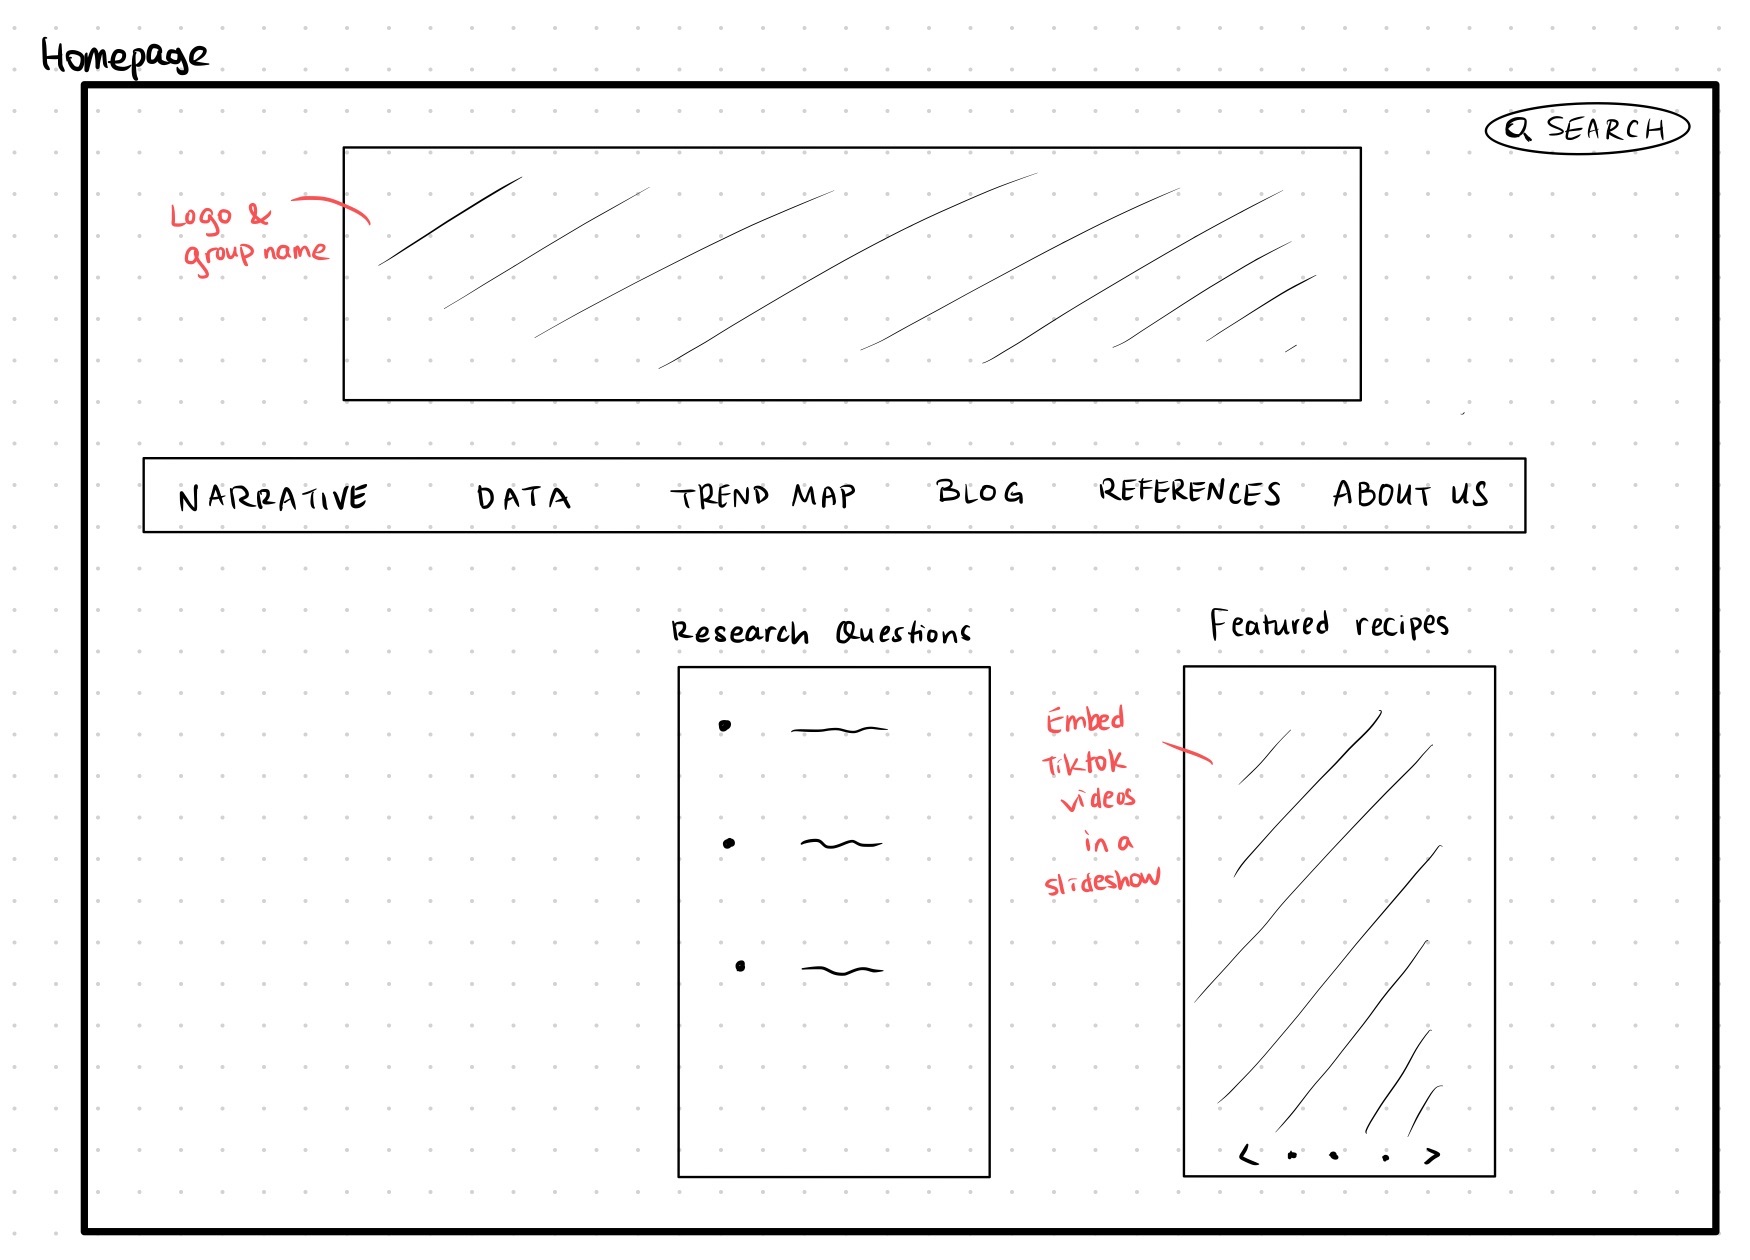 Homepage
SEARCH
Logo &
group name
NARRATIVE DATA TREND MAP BLOG REFERENCES ABOUT US
Research Questions
Featured recipes
Embed
Tiktok
videos
in a
slideshow